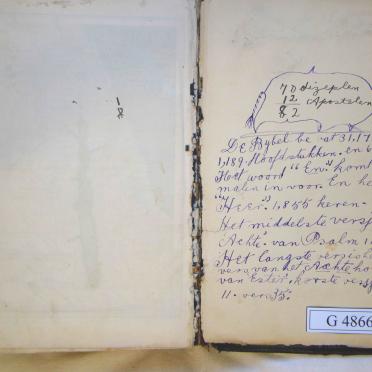 1
8
70 dizeplen
12 Apostelen
82
De Bybel be at 31,17
1,189. Hoofdstukken. en 6
Het woord "En" komt
malen in voor. En he
"Heer". 1,855 keren.
Het middelste versj
Achte". van Psalm 1
Het langste versis he
vers van het Achte ho
van Ester. korste vers
11. vers 35.
G 4866